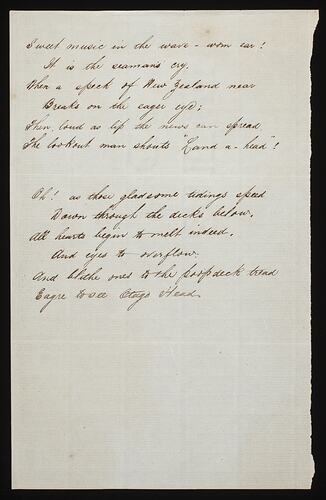 Sweet music in the wave - worn ear!
It is the seaman's cry.
When a speck of New Zealand near
Breaks on the eager eye;
Then, loud as lip the news can spread
The lookout man shouts "Land a-head"!
Oh! as those gladsome tidings speed
Down through the decks below,
All hearts begin to melt indeed,
And eyes to overflow.
And blithe ones to the poopdeck tread
Eagre to see Otago Head.